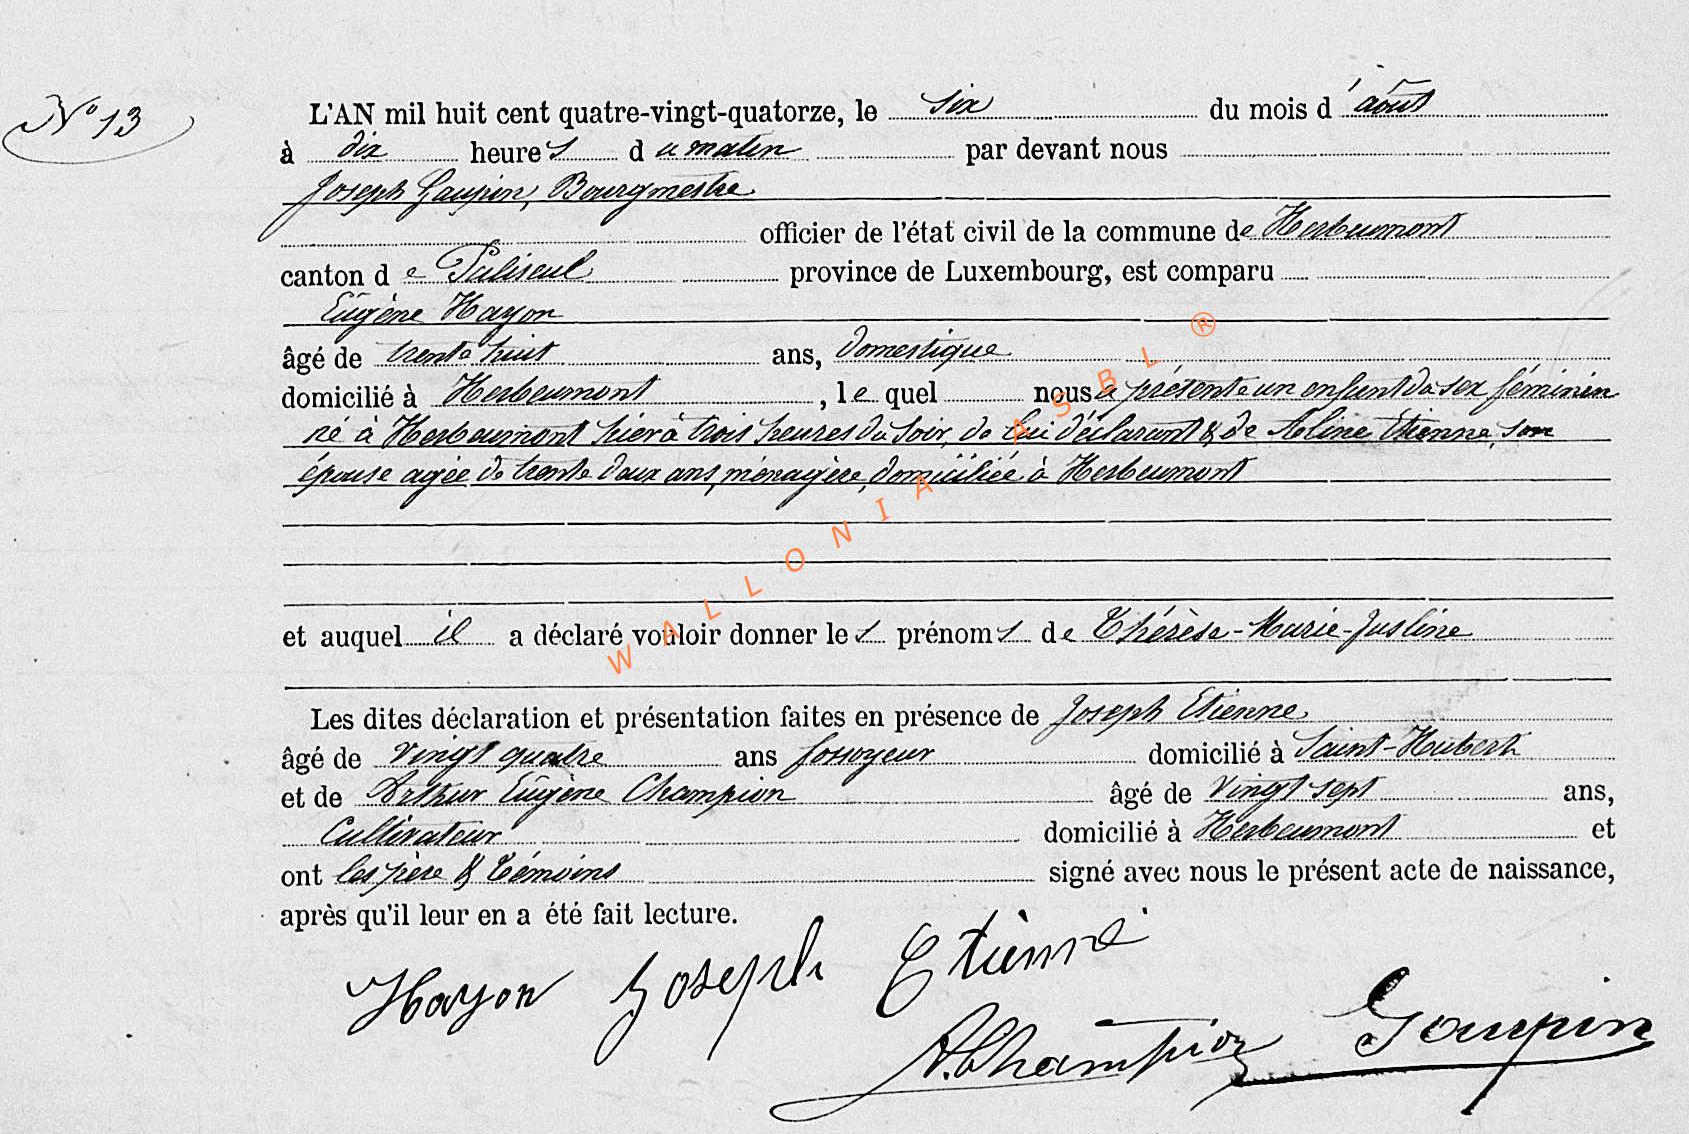 N° 13
L'AN mil huit cent quatre-vingt-quatorze, le six du mois d'août
à dix heures du matin par devant nous
Joseph Goupin, Bourgmestre
officier de l'état civil de la commune de Herbeumont
canton de Paliseul province de Luxembourg, est comparu
Eugène Hayon
âgé de trente huit ans, domestique
domicilié à Herbeumont, lequel nous a présenté un enfant du sex féminin
né à Herbeumont hier à trois heures du soir, de lui déclarant & de Aline Etienne, son
épouse agée de trente deux ans, ménagère, domiciliée à Herbeumont
et auquel il a déclaré vouloir donner les prénoms de Thérèse-Marie-Justine
Les dites déclaration et présentation faites en présence de Joseph Etienne
âgé de vingt quatre ans fossoyeur domicilié à Saint-Hubert
et de Arthur Eugène Champion âgé de vingt sept ans,
Cultivateur domicilié à Herbeumont et
ont les père & témoins signé avec nous le présent acte de naissance,
après qu'il leur en a été fait lecture.
Hayon Joseph Etienne
A. Champion Goupin
WALLONIA ASBL ®